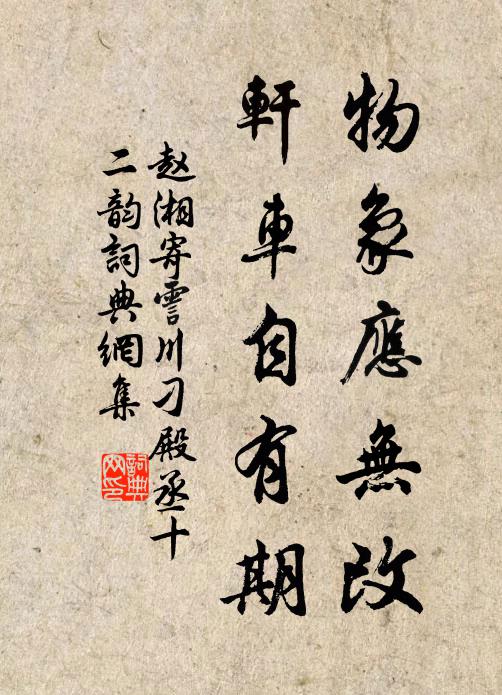 物象應無改
軒車自有期
赵湘寄霅川刁殿丞十
二韵詞典網集
詞典網印